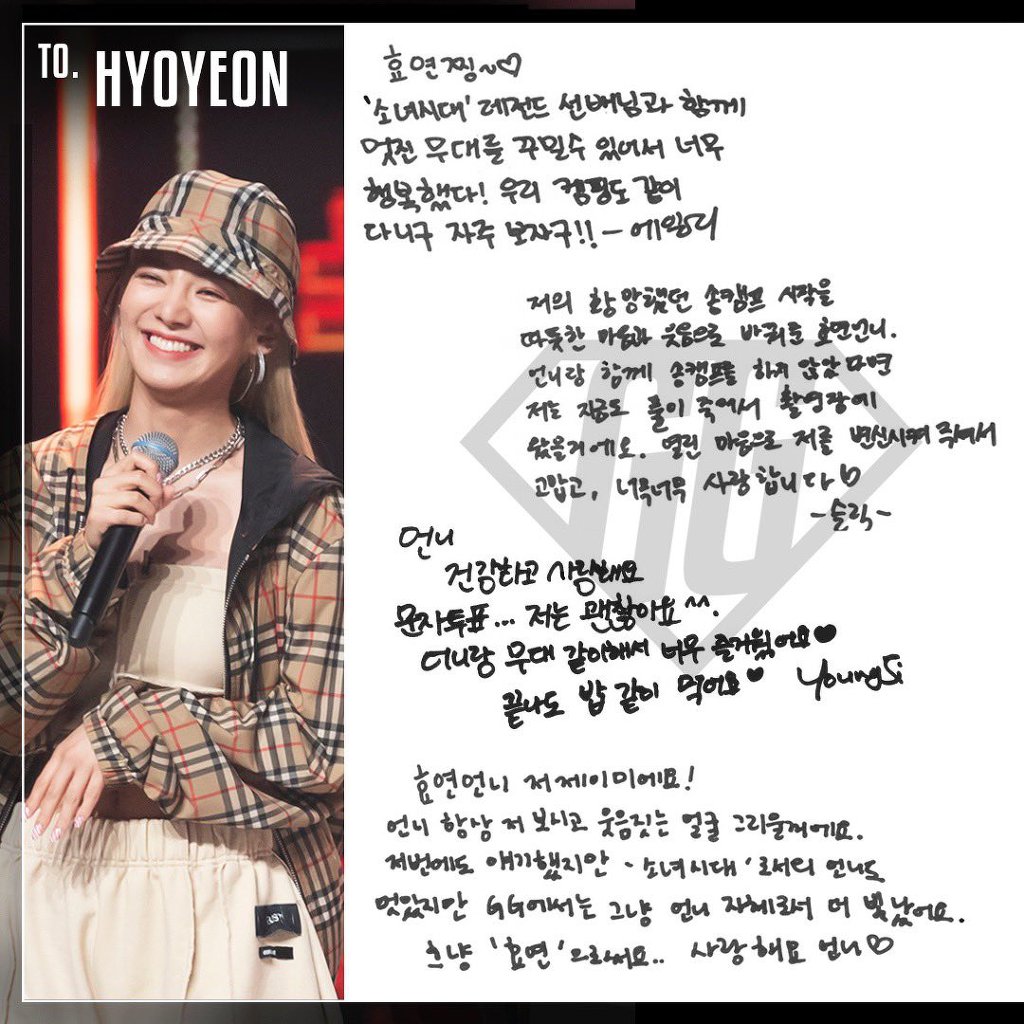 TO. HYOYEON
효연찡~♡
'소녀시대' 레전드 선배님과 함께
멋진 무대를 꾸밀수 있어서 너무
행복했다! 우리 캠핑도 같이
다니구 자주 보자구!! - 에왕리
저의 황망했던 송캠프 시작을
따뜻한 마음과 웃음으로 바꿔준 효연언니.
언니랑 함께 송캠프를 하지 않았다면
저는 지금도 풀이 죽어서 촬영장에
왔을거에요. 열린 마음으로 저를 변신시켜 줘서
고맙고, 너무너무 사랑합니다♡
-슬릭-
언니
건강하고 사랑해요
문자투표... 저는 괜찮아요^^.
언니랑 무대 같이해서 너무 즐거웠어요♥
끝나도 밥 같이 먹어요♥ YoungSi
효연언니 저 제이미에요!
언니 항상 저 보시고 웃음짓는 얼굴 그리울꺼에요.
저번에도 얘기했지만 '소녀시대'로서의 언니도
멋있지만 GG에서는 그냥 언니 자체로서 더 빛났어요.
그냥 '효연'으로써요.. 사랑해요 언니♡
GG